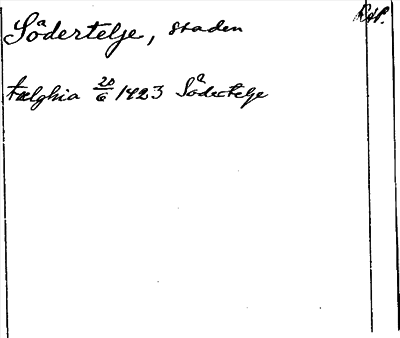 Södertelje, staden
tælghia 20/6 1423 Södertelje